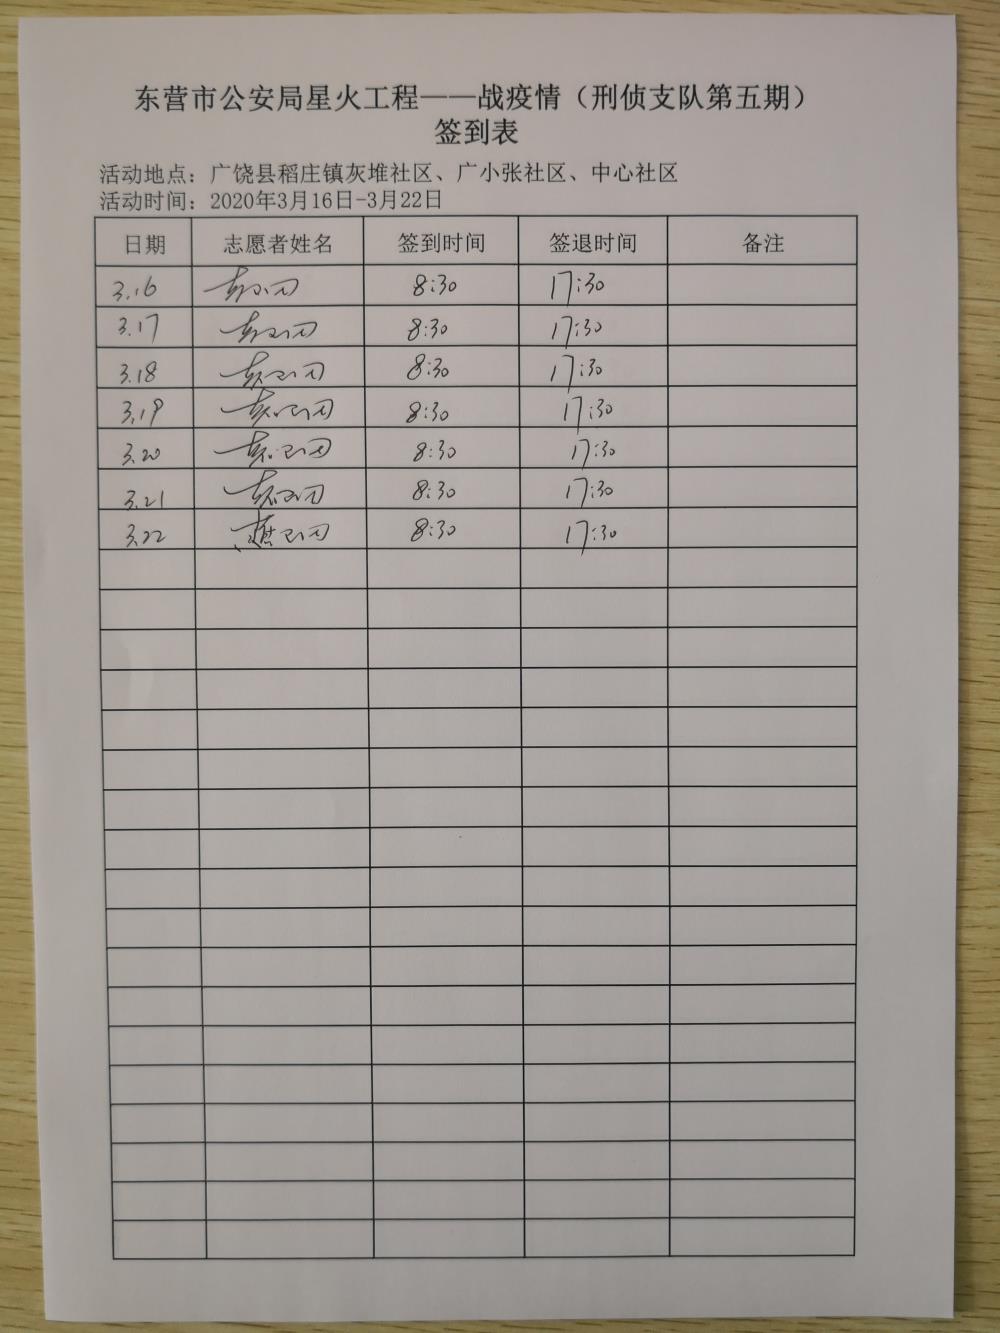 东营市公安局星火工程——战疫情（刑侦支队第五期）
签到表
活动地点：广饶县稻庄镇灰堆社区、广小张社区、中心社区
活动时间：2020年3月16日-3月22日
日期 志愿者姓名 签到时间 签退时间 备注
3.16 8:30 17:30
3.17 8:30 17:30
3.18 8:30 17:30
3.19 8:30 17:30
3.20 8:30 17:30
3.21 8:30 17:30
3.22 8:30 17:30